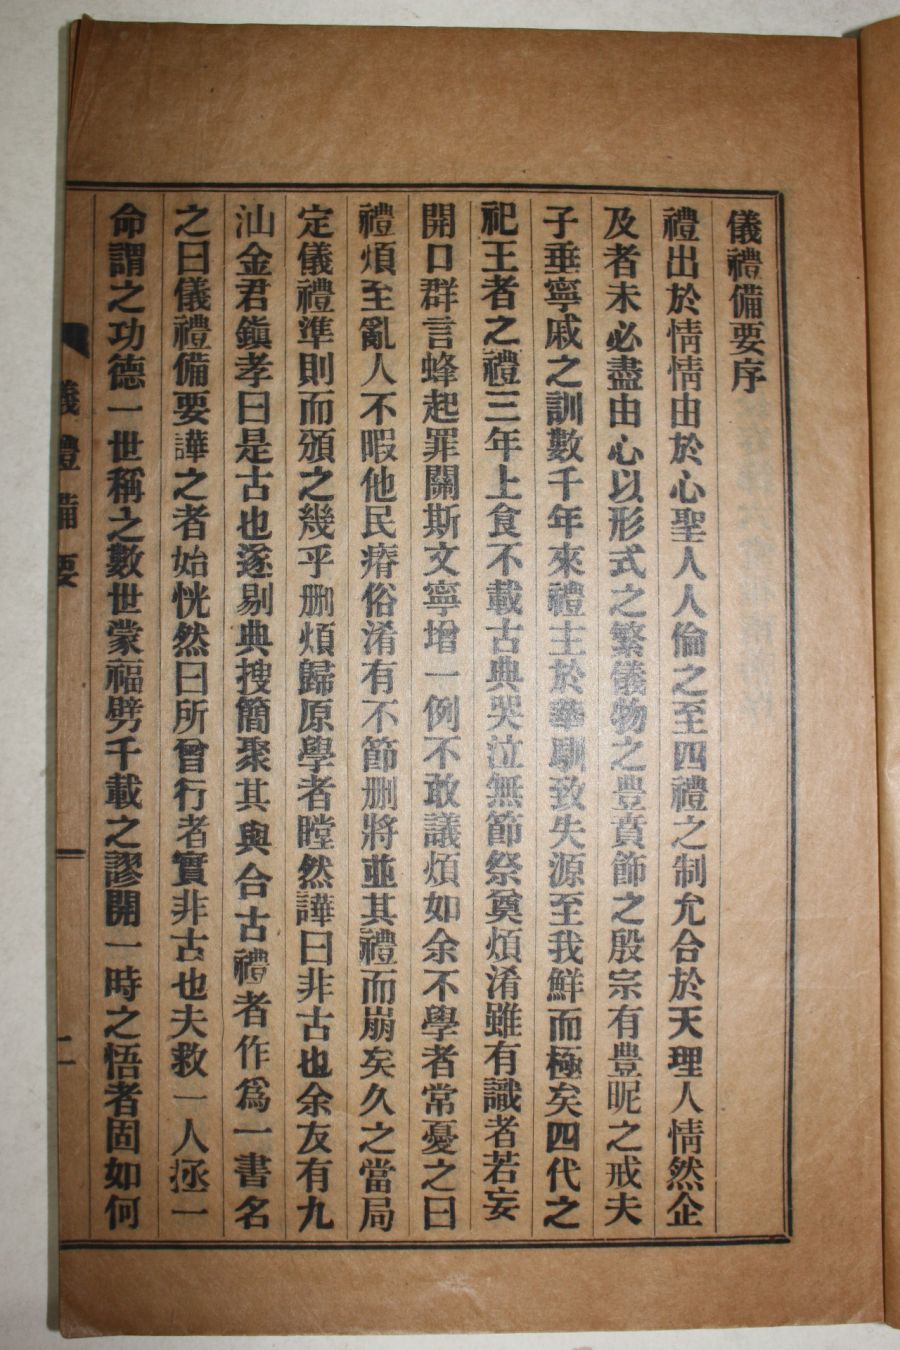 儀禮備要序
禮出於情情由於心聖人人倫之至四禮之制允合於天理人情然企
及者未必盡由心以形式之繁儀物之豊賁飾之殷宗有豊昵之戒夫
子垂寧戚之訓數千年來禮主於華馴致失源至我鮮而極矣四代之
祀王者之禮三年上食不載古典哭泣無節祭奠煩淆雖有識者若妄
開口群言蜂起罪關斯文寧增一例不敢議煩如余不學者常憂之曰
禮煩至亂人不暇他民瘠俗淆有不節刪將並其禮而崩矣久之當局
定儀禮準則而頒之幾乎刪煩歸原學者瞠然譁曰非古也余友有九
汕金君鎭孝曰是古也遂剔典搜簡聚其與合古禮者作爲一書名
之曰儀禮備要譁之者始恍然曰所曾行者實非古也夫救一人拯一
命謂之功德一世稱之數世蒙福劈千載之謬開一時之悟者固如何
儀禮備要
一